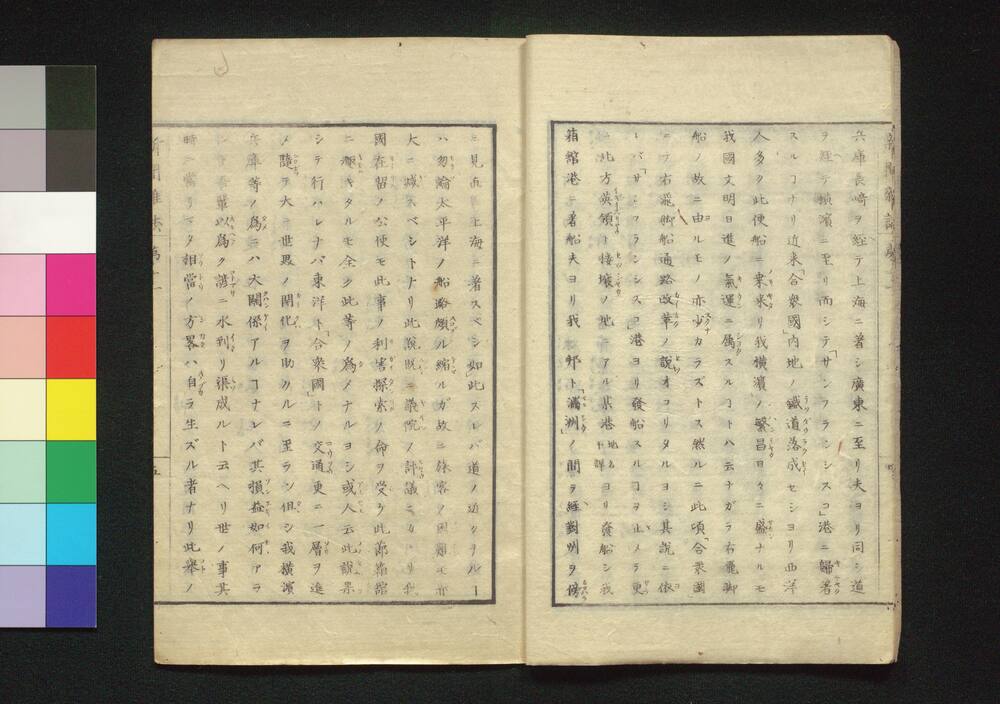 兵庫長崎ヲ経テ上海ニ著シ廣東ニ至リ夫ヨリ同シ道
ヲ経テ横濱ニ至リ而シテ「サンフランシスコ」港ニ歸著
スルヿナリ近来「合衆國」内地ノ鐵道落成セシヨリ西洋
人多ク此便船ニ乗来リ我横濱ノ繁昌日々ニ盛ナルモ
我國文明日進ノ氣運ニ属スルヿトハ云ナガラ右飛脚
船ノ故ニ由ルモノ亦少カラズトス然ルニ此項「合衆國」
ニテ右飛脚船通路改革ノ説オコリタルヨシ其説ニ依
レバ「サンフランシスコ」港ヨリ發船スルヿヲ止メテ更
ニ此方英領ト接壌ノ地ニアル某港地名不詳ヨリ發船シ我
箱舘港ニ着船夫ヨリ我邦ト「満洲」ノ間ヲ経對州ヲ傍
ニ見直ニ上海ニ著スベシ如此スレバ道ノ近クナルー
ハ勿論太平洋ノ船路頗ル縮ルガ故ニ旅客ノ困難モ亦
大ニ減スベシトナリ此説既ニ議院ノ評議ニカヽリ我
國在留ノ公使モ此事ノ利害探索ノ命ヲ受ク此節箱舘
ニ赴キタルモ全ク此等ノ為メナルヨシ或人云此説果
シテ行ハレナバ東洋ト「合衆國」トノ交通更ニ一層ヲ進
メ随テ大ニ世界ノ開化ヲ助クルニ至ラン但シ我横濱
兵庫等ノ為ニハ大関係アルヿナレバ其損益如何アラ
ン
吾輩以為ク諺ニ水到リ渠成ルト云ヘリ世ノ事其
時ニ當リテマタ相當ノ方畧ハ自ラ生ズル者ナリ此舉ノ
新聞雑誌
五